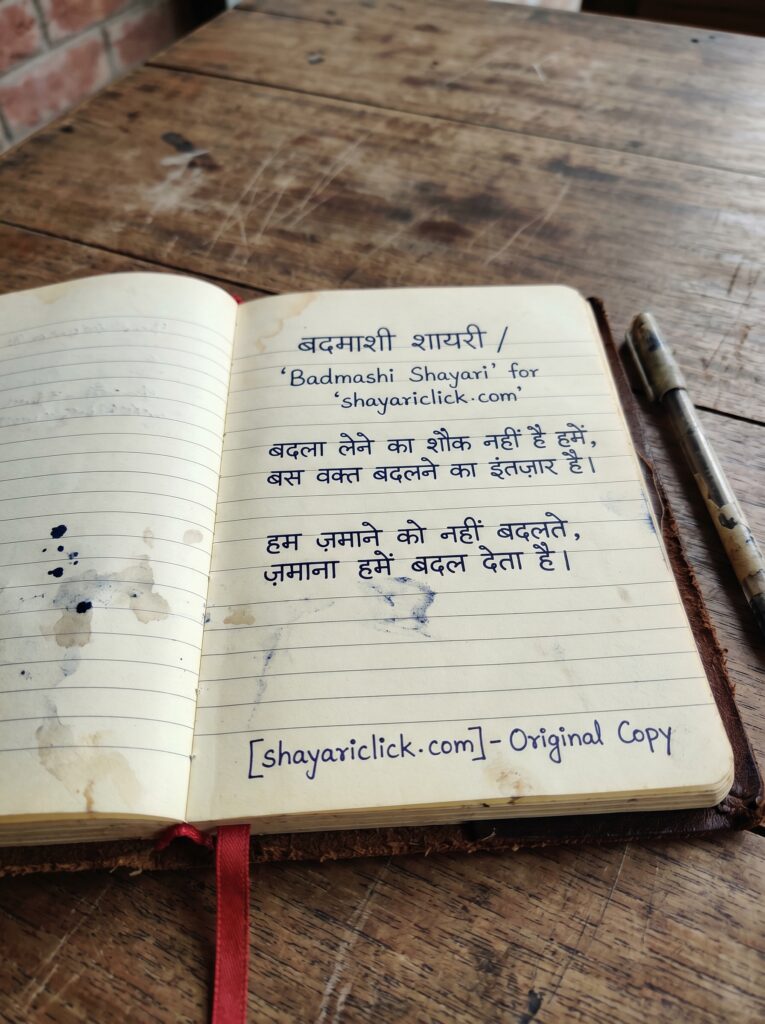 बदमाशी शायरी /
'Badmashi Shayari' for
'shayariclick.com'
बदला लेने का शौक नहीं है हमें,
बस वक्त बदलने का इंतज़ार है।
हम ज़माने को नहीं बदलते,
ज़माना हमें बदल देता है।
[shayariclick.com] - Original Copy